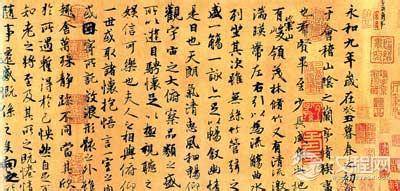 永和九年歲在癸丑暮春之初
于會稽山陰之蘭亭脩稧
也羣賢畢至少長咸
有崇山峻領茂林脩竹又有清流
湍暎帶左右引以為流觴曲水
列坐其次雖無絲竹管弦
盛一觴一詠亦足以暢敘幽情
是日也天朗氣清惠風和暢
觀宇宙之大俯察品類之盛
所以遊目騁懷足以極視聽之
娛信可樂也夫人之相與俯仰
一世或取諸懷抱悟言一室之
或因寄所託放浪形骸之外
趣舍萬殊靜躁不同當其欣
於所遇蹔得於己怏然自足
知老之將至及其所之既惓
隨事遷感慨係之矣向之